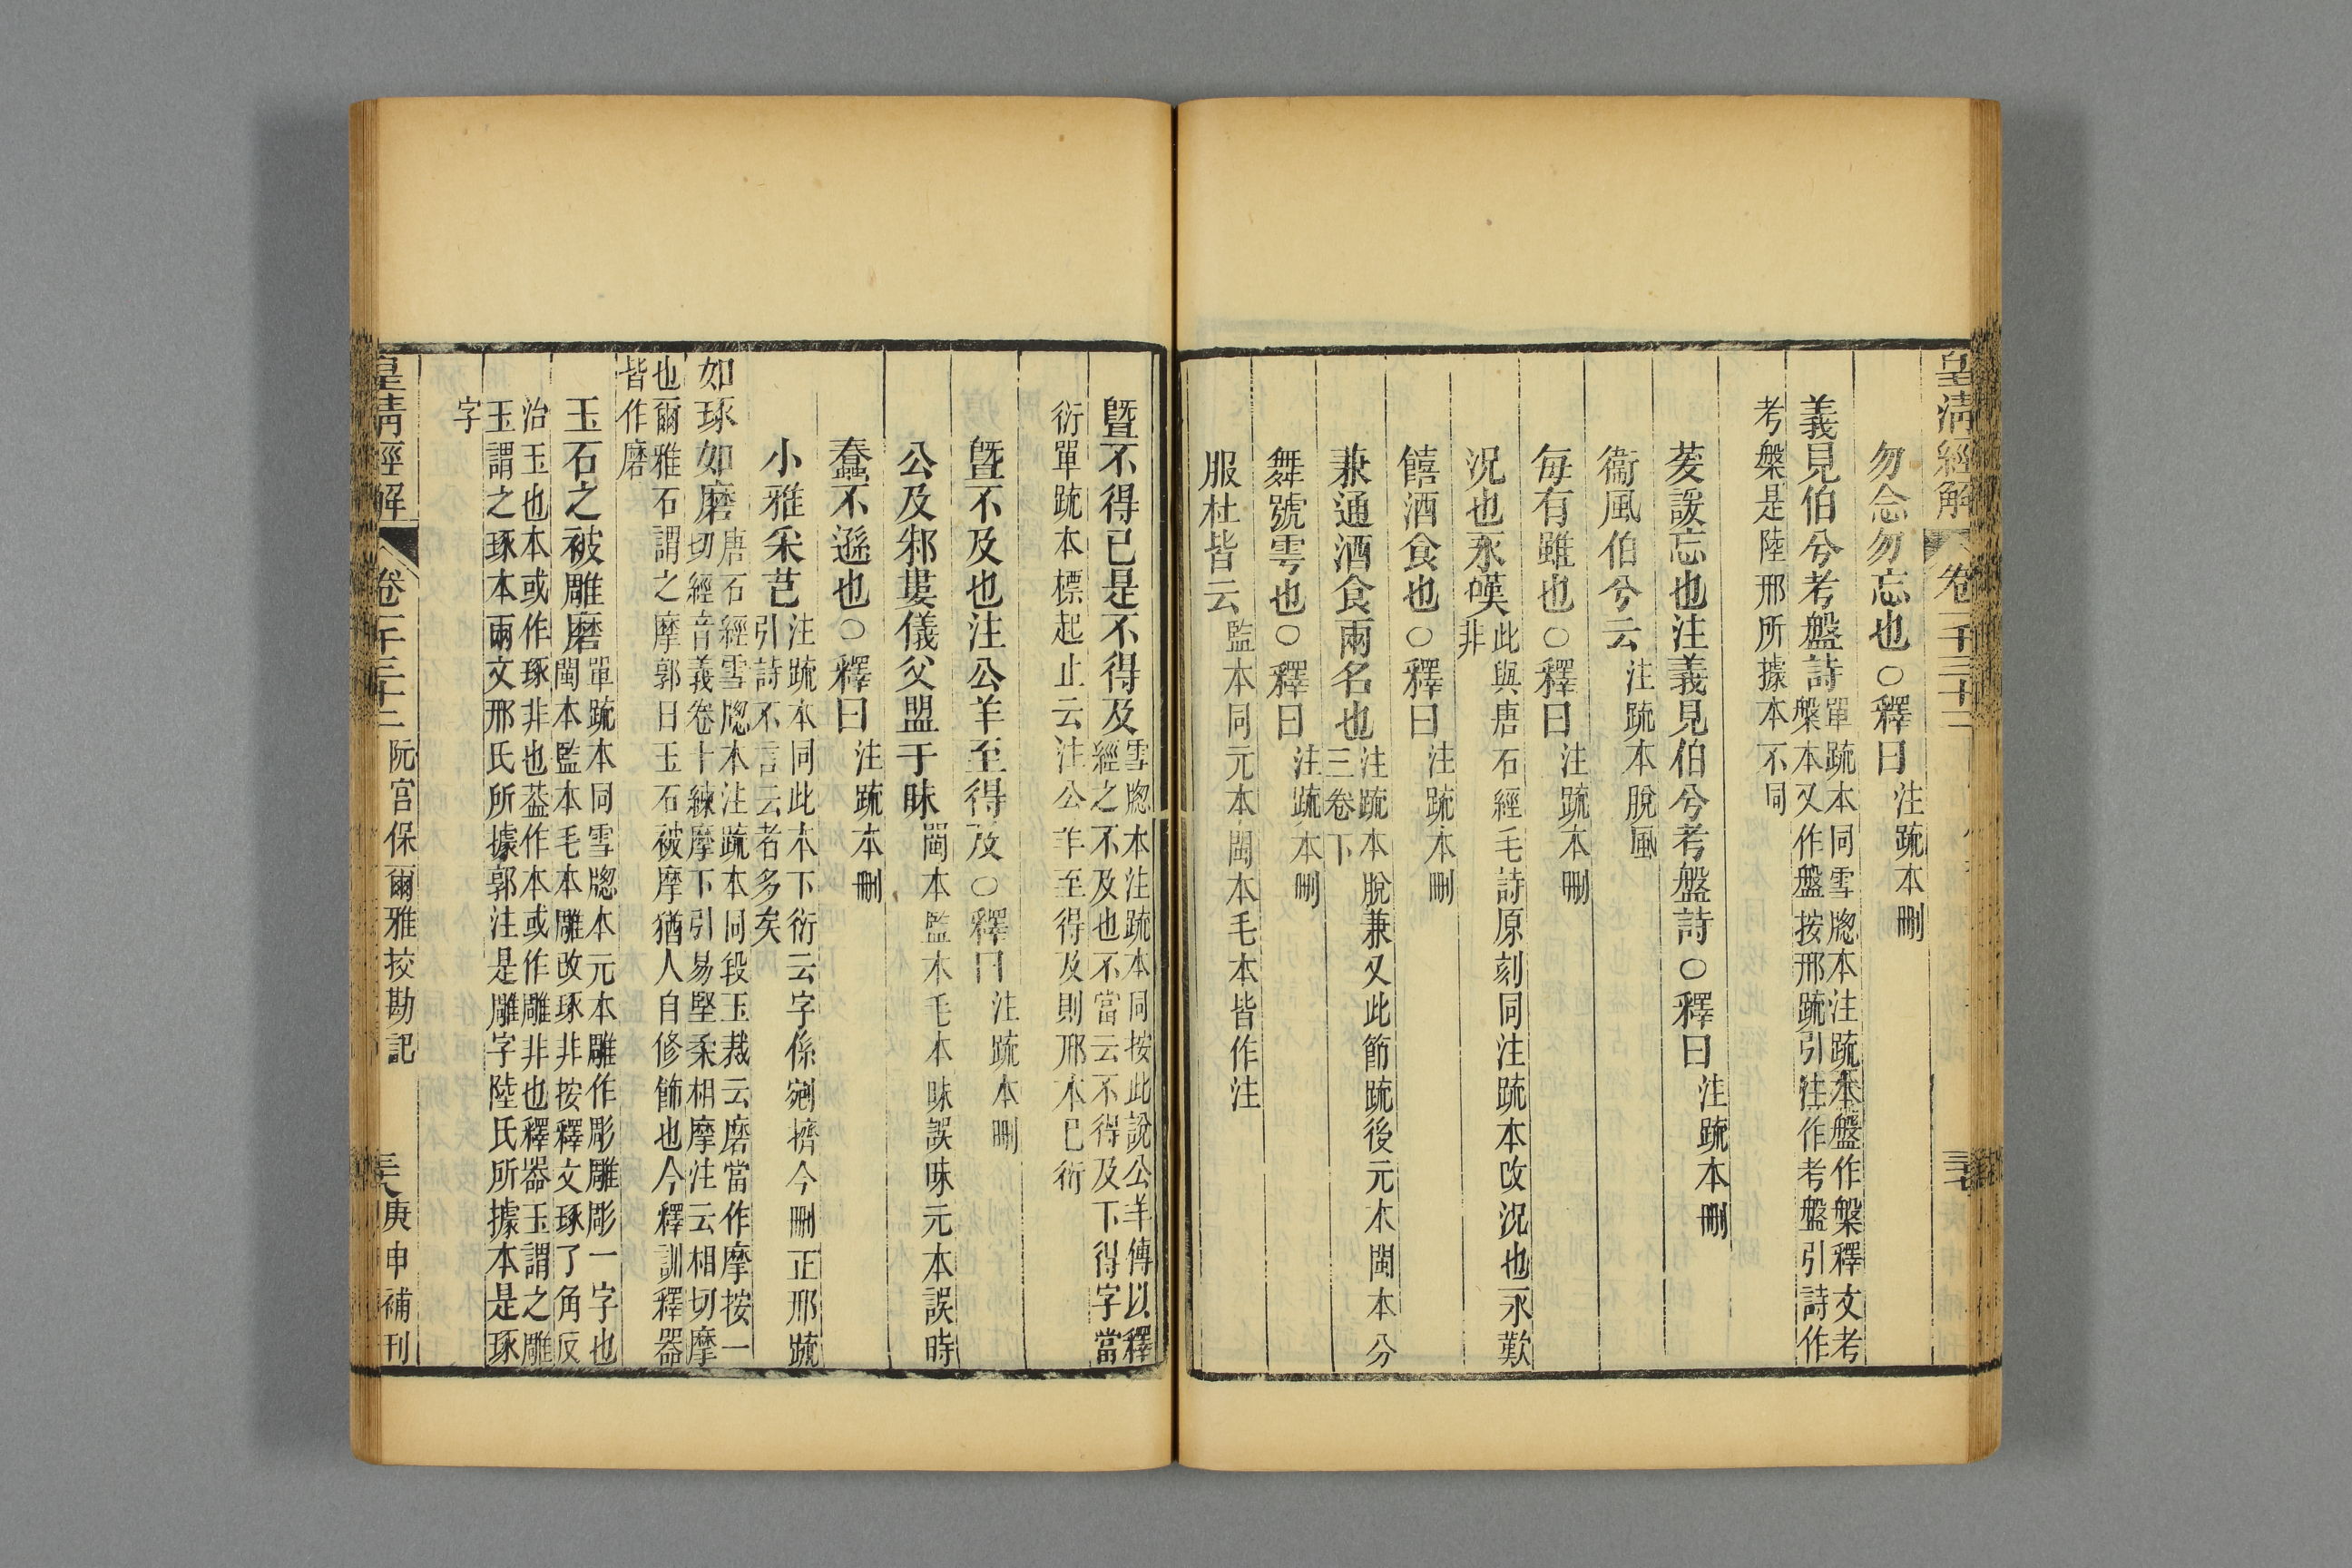 皇清經解 卷一千三十二
勿念勿忘也○釋曰注疏本刪
義見伯兮考盤詩單疏本同雪牕本注疏本盤作槃釋文考
槃本又作盤按邢疏引注作考盤引詩作
考槃是陸邢所據本不同
萲諼忘也注義見伯兮考盤詩○釋曰注疏本刪
衞風伯兮云注疏本脫風
每有雖也○釋曰注疏本刪
況也永嘆此與唐石經毛詩原刻同注疏本改況也永歎
非
饎酒食也○釋曰注疏本刪
兼通酒食兩名也注疏本脫兼又此節疏後元本閩本分
三卷下
舞號雩也○釋曰注疏本刪
服杜皆云監本同元本閩本毛本皆作注
曁不得已是不得及雪牕本注疏本同按此說公羊傳以釋
經之不及也不當云不得及下得字當
衍單疏本標起止云注公羊至得及則邢本已衍
曁不及也注公羊至得及○釋曰注疏本刪
公及邾婁儀父盟于昧閩本監本毛本昧誤眛元本誤時
蠢不遜也○釋曰注疏本刪
小雅采芑注疏本同此本下衍云字係剜擠今刪正邢疏
引詩不言云者多矣
如琢如磨唐石經雪牕本注疏本同段玉裁云磨當作摩按一
切經音義卷十練摩下引易堅柔相摩注云相切摩
也爾雅石謂之摩郭曰玉石被摩猶人自修飾也今釋訓釋器
皆作磨
玉石之被雕磨單疏本同雪牕本元本雕作彫雕彫一字也
閩本監本毛本雕改琢非按釋文琢了角反
治玉也本或作琢非也葢作本或作雕非也釋器玉謂之雕
玉謂之琢本兩文邢氏所據郭注是雕字陸氏所據本是琢
字
皇清經解 卷一千三十二 阮宮保爾雅挍勘記 庚申補刊